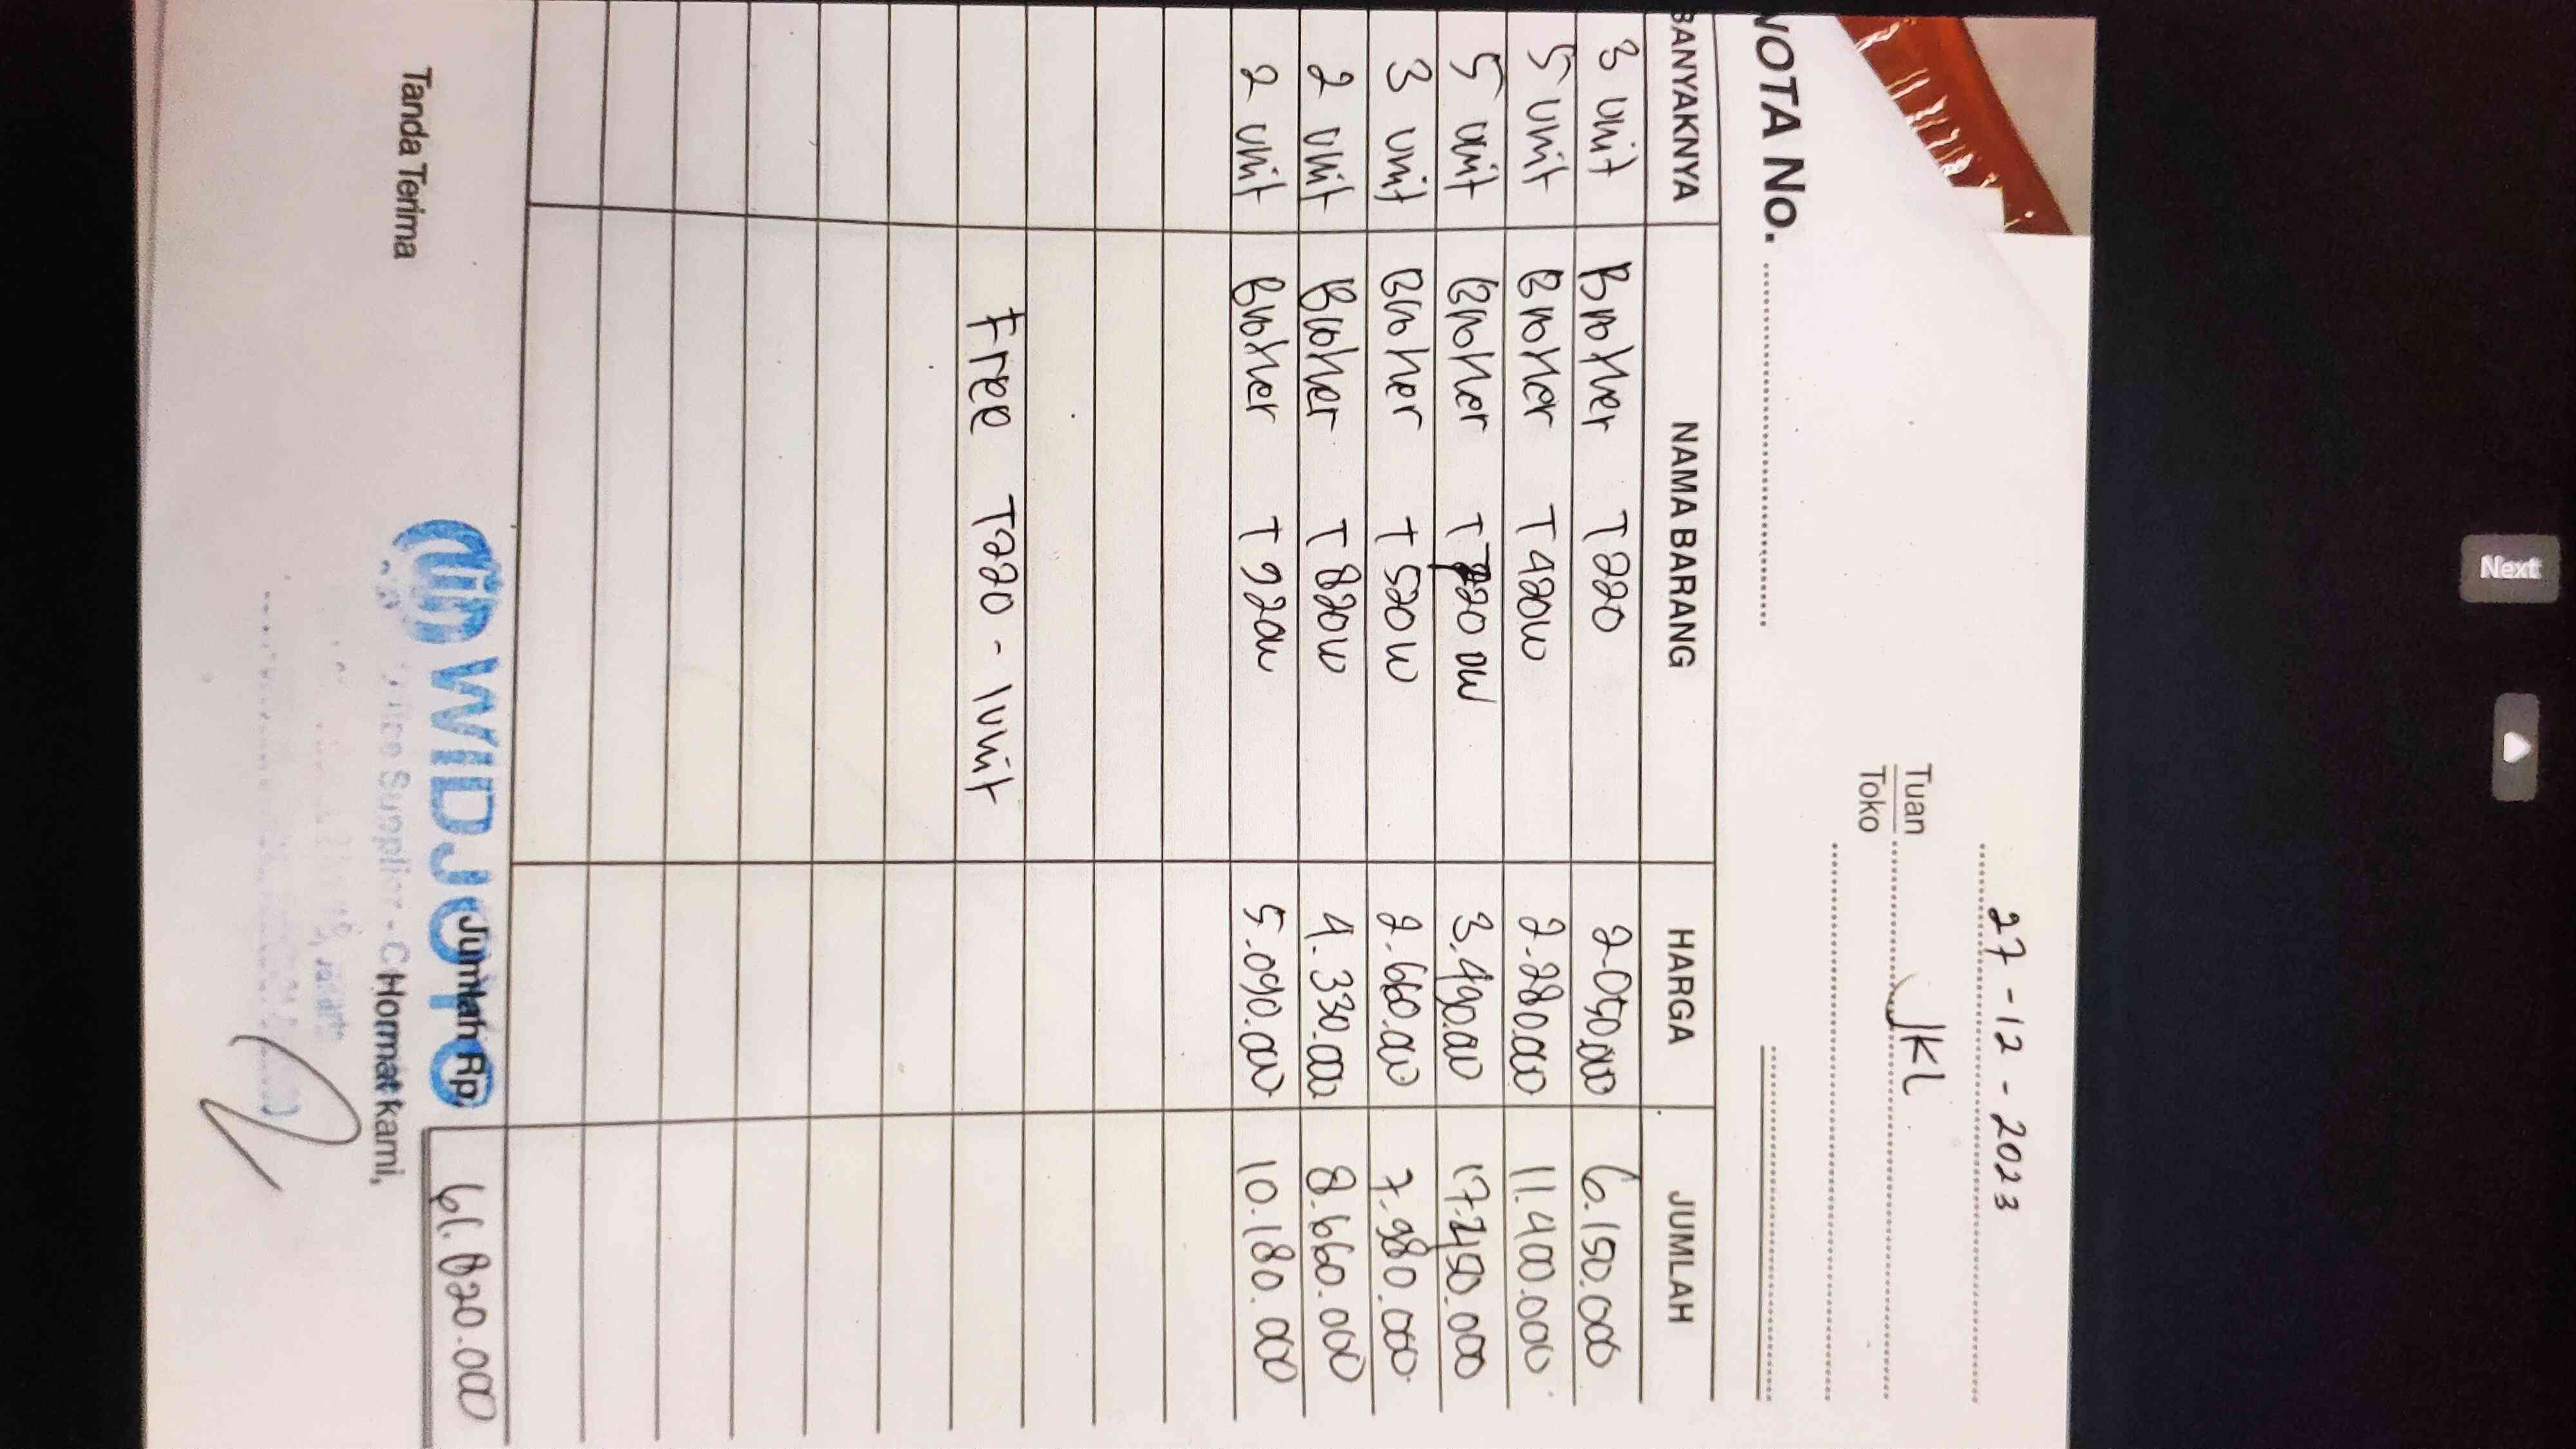 27-12-2023
Tuan JKL
Toko
NOTA No.
BANYAKNYA NAMA BARANG HARGA JUMLAH
3 unit Brother T220 2.050.000 6.150.000
5 unit Brother T420W 2.280.000 11.400.000
5 unit Brother T720DW 3.490.000 17.450.000
3 unit Brother T520W 2.660.000 7.980.000
2 unit Brother T820W 4.330.000 8.660.000
2 unit Brother T920W 5.090.000 10.180.000
Free T220 - 1 unit
Jumlah Rp. 61.820.000
WIDJOJO
Tanda Terima Hormat kami,
Supplier
Next